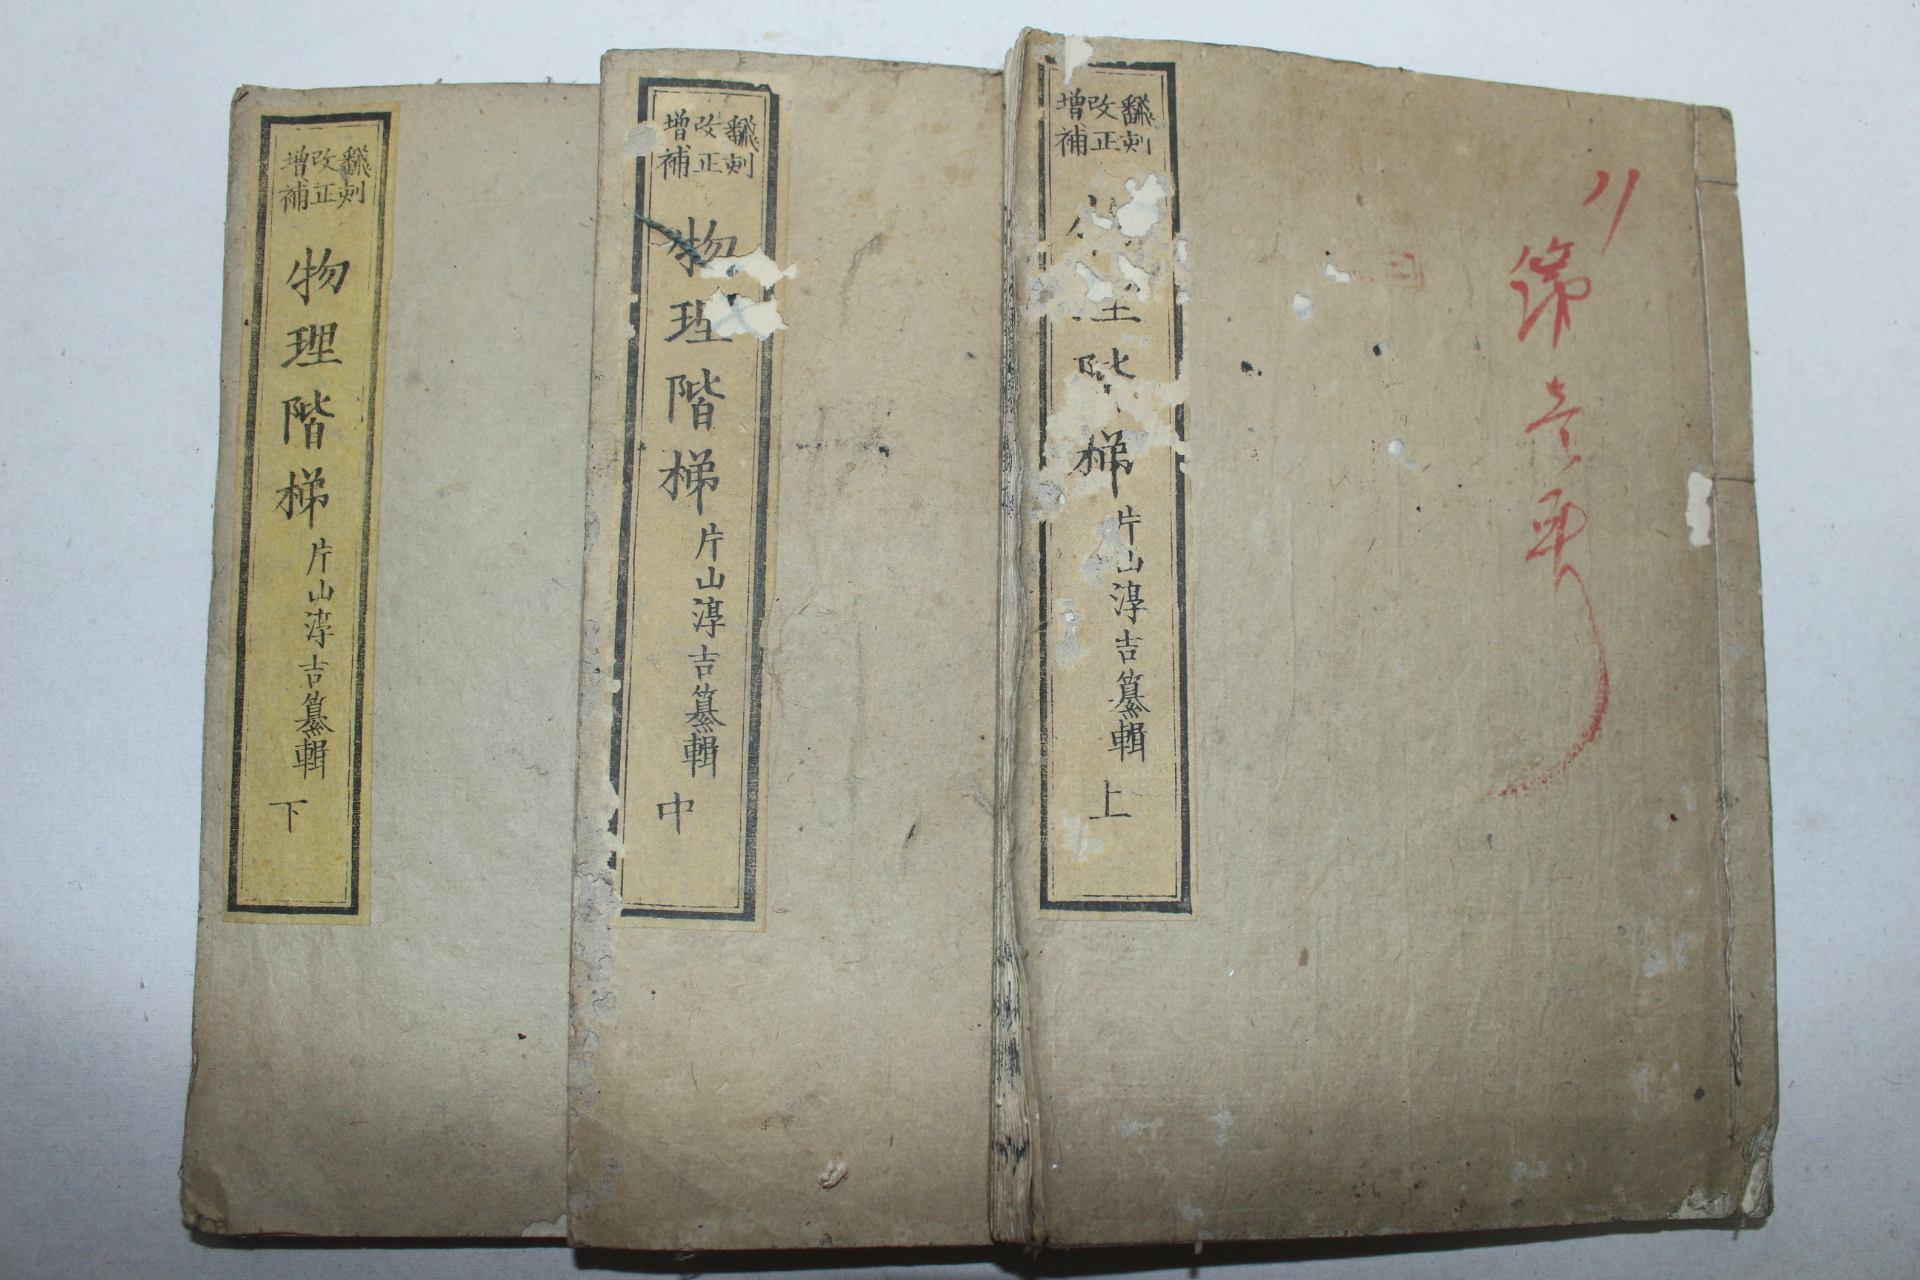 翻刻
改正
増補
理階梯
片山淳吉纂輯
上
翻刻
改正
増補
物理階梯
片山淳吉纂輯
中
翻刻
改正
増補
物理階梯
片山淳吉纂輯
下